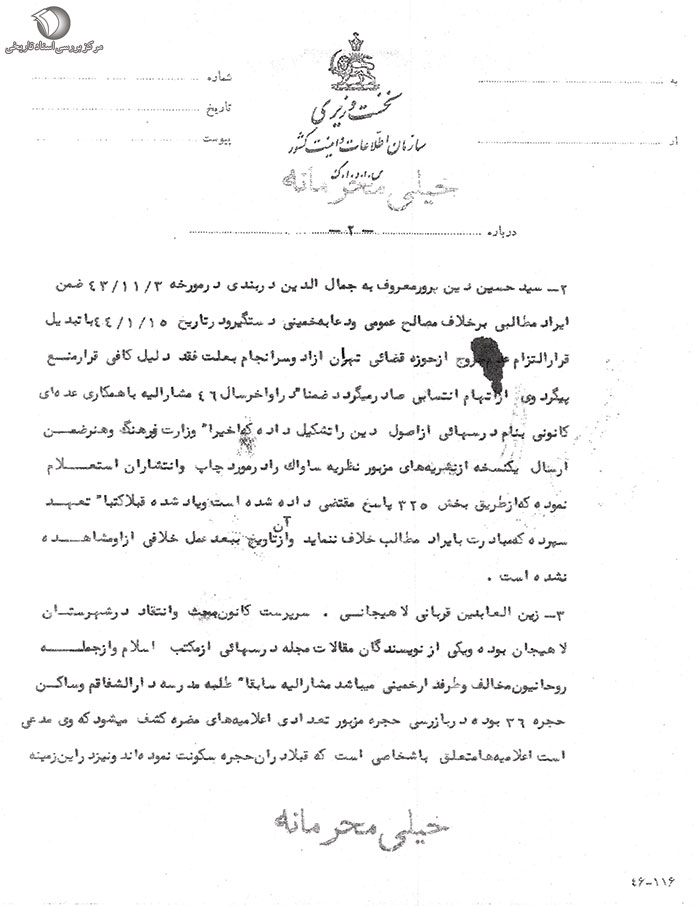 مرکز بررسی اسناد تاریخی
به
شماره
نخست وزیری
تاریخ
سازمان اطلاعات و امنیت کشور
از
پیوست
خیلی محرمانه
درباره
-۲-
۲- سید حسین دین پرور معروف به جمال الدین دربندی در مورخه ۴۳/۱۱/۳ ضمن
ایراد مطالبی برخلاف مصالح عمومی و دعا به خمینی دستگیر و در تاریخ ۴۴/۱/۱۵ با تبدیل
قرار التزام عدم خروج از حوزه قضائی تهران ازاد و سرانجام بعلت فقد دلیل کافی قرار منع
پیگرد وی از اتهام انتسابی صادر میگردد ضمنا" در اواخر سال ۴۶ مشارالیه با همکاری عده ای
کانونی بنام درسهائی از اصول دین را تشکیل داده که اخیرا" وزارت فرهنگ و هنر ضمن
ارسال یکنسخه از نشریه های مزبور نظریه ساواک را در مورد چاپ و انتشار ان استعلام
نموده که از طریق بخش ۳۲۵ پاسخ مقتضی داده شده است و یاد شده قبلا کتبا" تعهد
سپرده که مبادرت بایراد مطالب خلاف ننماید و از آن تاریخ ببعد عمل خلافی از او مشاهده
نشده است .
۳- زین العابدین قربانی لاهیجانی . سرپرست کانون بحث و انتقاد در شهرستان
لاهیجان بوده و یکی از نویسندگان مقالات مجله درسهائی از مکتب اسلام و از جمله
روحانیون مخالف و طرفدار خمینی میباشد مشارالیه سابقا" طلبه مدرسه دارالشفا قم و ساکن
حجره ۳۶ بوده در بازرسی حجره مزبور تعدادی اعلامیه های مضره کشف میشود که وی مدعی
است اعلامیه ها متعلق باشخاصی است که قبلا در ان حجره سکونت نموده اند و نیز در این زمینه
خیلی محرمانه
۴۶-۱۱۶